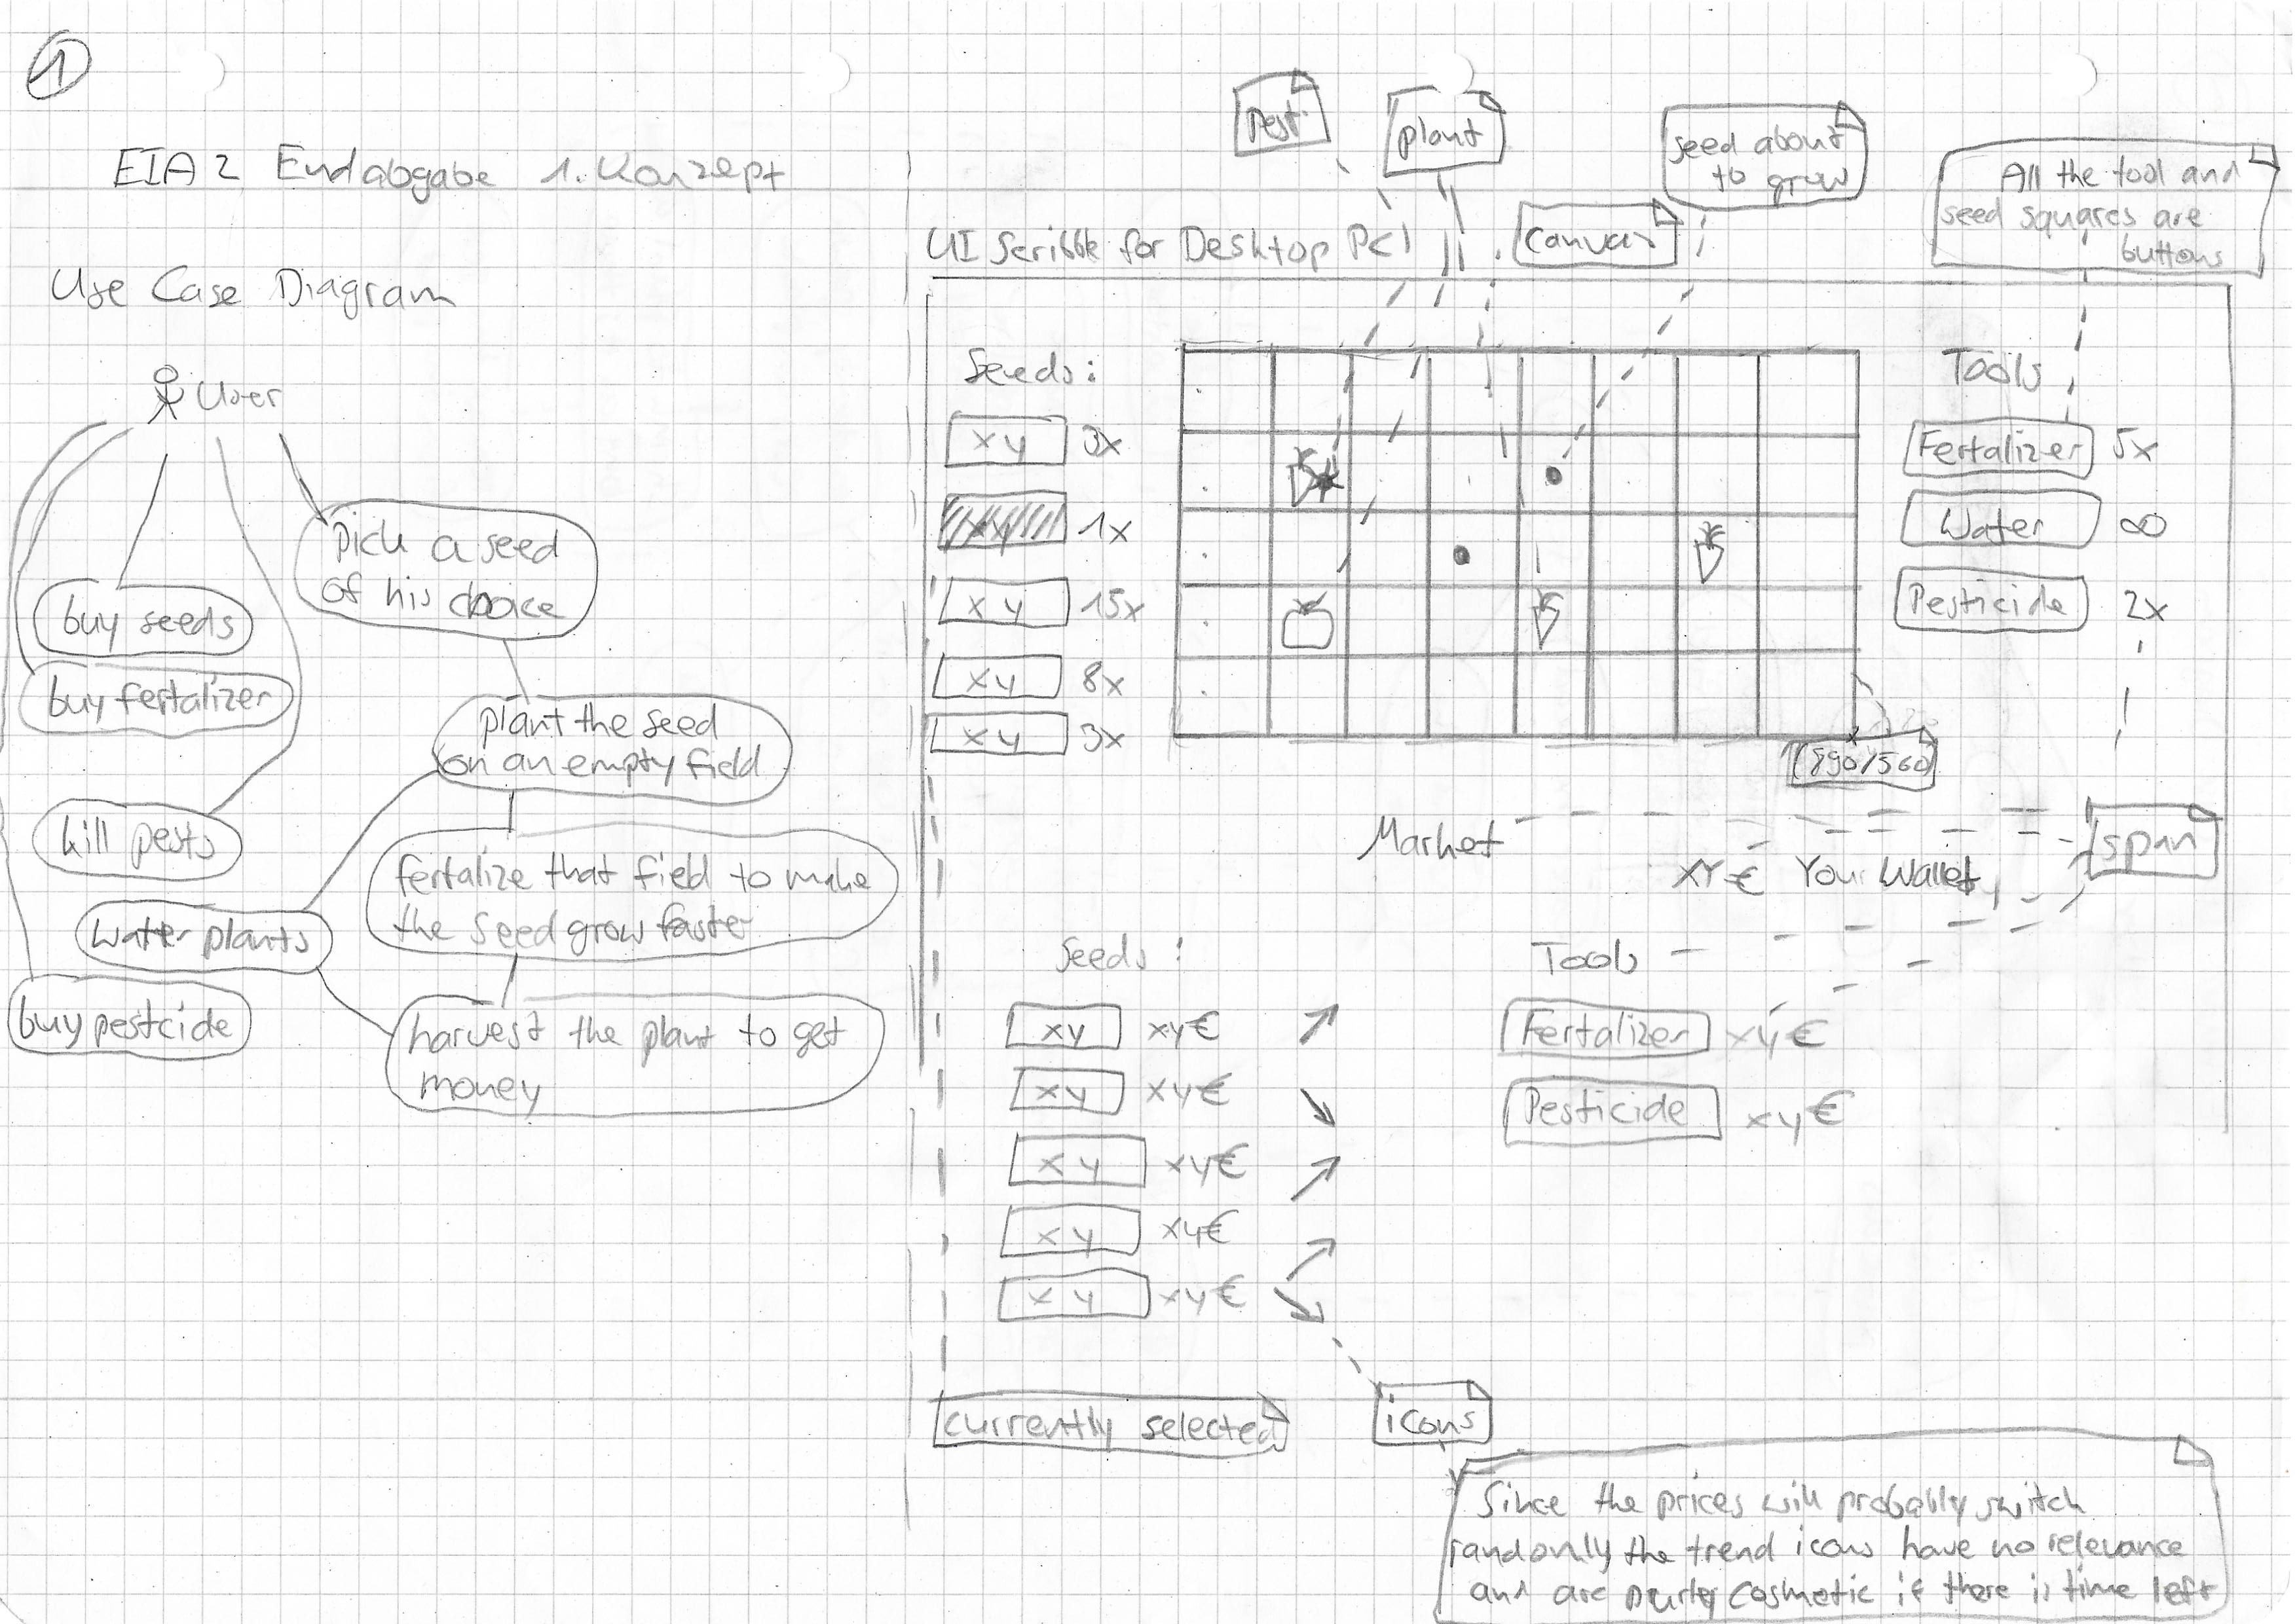 1
EIA2 Endabgabe 1. Konzept
Use Case Diagram
User
Pick a seed
of his choice
buy seeds
buy fertalizer
plant the seed
on an empty field
kill pests
fertalize that field to make
the seed grow faster
water plants
buy pesticide
harvest the plant to get
money
Pest
plant
seed about
to grow
All the tool and
seed squares are
buttons
canvas
UI Scribble for Desktop PC
Seeds:
xy 3x
xy 1x
xy 15x
xy 8x
xy 3x
Tools
Fertalizer 5x
Water ∞
Pesticide 2x
(890/560)
Market
XY€ Your Wallet
span
Seeds:
xy xy€
xy xy€
xy xy€
xy xy€
xy xy€
Tools
Fertalizer xy€
Pesticide xy€
currently selected
icons
Since the prices will probably switch
randomly the trend icons have no relevance
and are purley cosmetic if there is time left